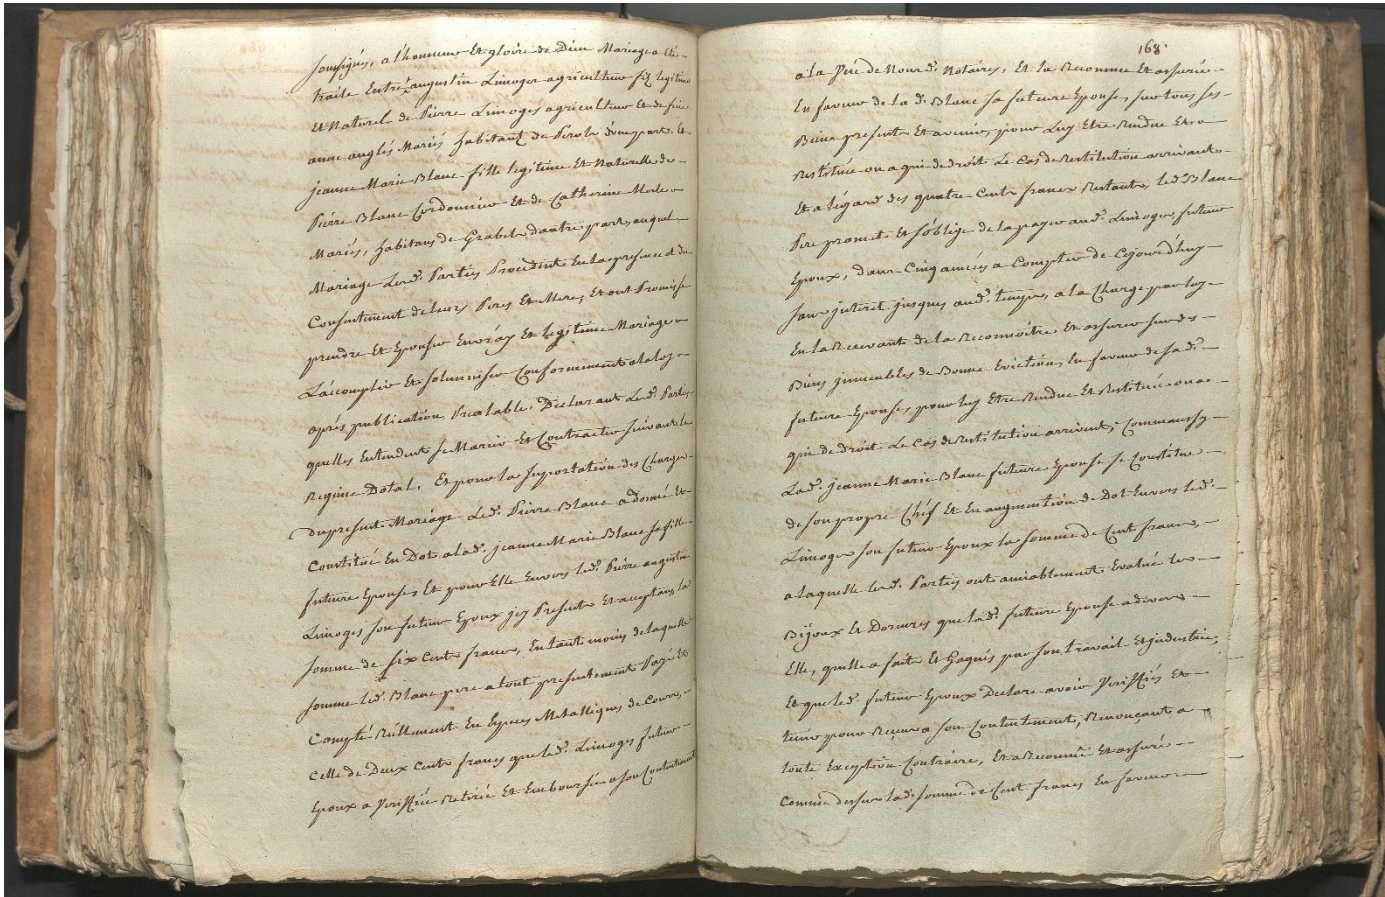 soussignés, a l'honneur Et gloire de Dieu Mariage a Eté
traité Entre augustin Limoges agriculteur fils legitime
Et Naturel de Pierre Limoges agriculteur et de feüe
anne anglés Mariés habitant de Perols d'une part. Et
jeanne Marie Blanc fille legitime Et Naturelle de
Pierre Blanc Cordonnier Et de Catherine
Mariés, habitans de Grabels dautre part, auquel
Mariage Lesd. Parties Procedent En la presence et du
Consentement de leurs Peres Et Meres, Et ont Promis se
prendre Et Epouser En vray Et Legitime Mariage
L'acomplir Et solemniser Conformement a la loy
aprés publication Prealable. Déclarant Lesd. Parties
quelles Entendent se Marier Et Contracter suivant le
Regime Dotal, Et pour la suportation des Charges
du present Mariage Led. Pierre Blanc a donné Et
Constitué En Dot a lad. jeanne Marie Blanc sa fille
future Epouse Et pour Elle Envers led. Pierre augustin
Limoges son futeur Epoux jcy Present Et acceptant, la
somme de six Cents francs, En tant moins de laquelle
somme led. Blanc pere a tout presentement Payé Et
Compté Réellement En Especes Metalliques de Cours,
Celle de Deux Cents francs que led. Limoges futeur
Epoux a Veriffiée Retirée Et Emboursée a son Contentement
168.
a la Vue de Nousd. Notaires, Et la Reconnue Et assurée
En faveur de la d. Blanc sa future Epouse, sur tous ses
Biens presents Et avenir, pour Luy Etre Rendue Et
Restituée ou a qui de droit Le Cas de Restitution arrivant
Et a l'égard des quatre Cents francs Restants, led. Blanc
Pere promet Et s'oblige de la payer aud. Limoges, futeur
Epoux, dans Cinq années a Compter de Cejourd'huy
sans jnteret jusques aud. temps, a la Charge par luy
En la Recevant de la Reconnoitre Et assurer sur des
Biens jmmeubles de Bonne Eviction, En faveur de sa d.
future Epouse, pour luy Etre Rendue Et Restituée ou a
qui de droit Le Cas de Restitution arrivant, Comme aussy
Lad. jeanne Marie Blanc future Epouse se Constitue
de son propre Chef Et En augmention de Dot Envers led.
Limoges son futeur Epoux la somme de Cent francs,
a laquelle lesd. Parties ont amiablement Evalué les
Bijoux Et Dorures que lad. future Epouse a devers
Elle, quelle a faits Et Gagnés par son travail Et jndustrie,
Et que led. futeur Epoux Declare avoir Veriffiés Et
pour Reçeus a son Contentement, Renonçant a
toute Exception Contraire, Et a Reconnu Et assuré
Comme dessus la d. somme de Cent francs En faveur